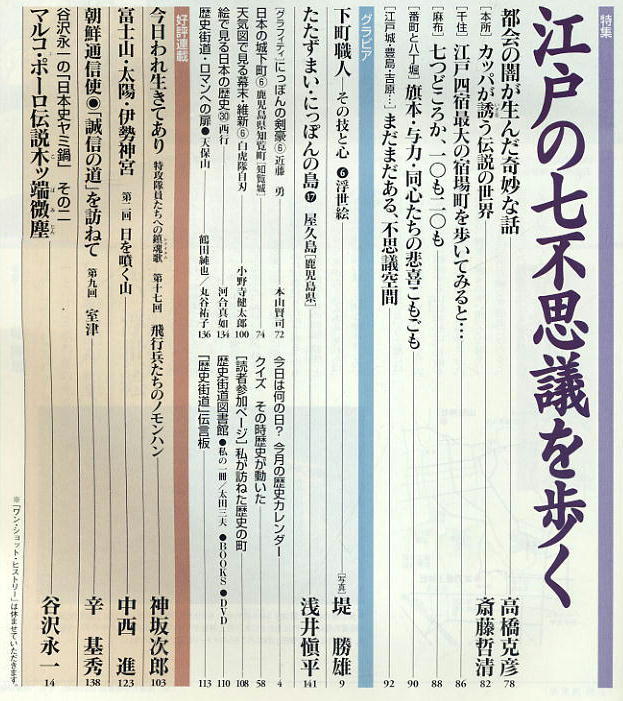 特集
江戸の七不思議を歩く
都会の闇が生んだ奇妙な話 高橋克彦 78
[本所] カッパが誘う伝説の世界 斎藤哲清 82
[千住] 江戸四宿最大の宿場町を歩いてみると… 86
[麻布] 七つどころか、一〇も二〇も 88
[番町と八丁堀] 旗本・与力・同心たちの悲喜こもごも 90
[江戸城・豊島・吉原…] まだまだある、不思議空間 92
グラビア
下町職人 その技と心 ❻浮世絵 [写真]堤 勝雄 9
たたずまい・にっぽんの島⓱ 屋久島[鹿児島県] 浅井愼平 141
[グラフィティ]にっぽんの剣豪⑥近藤 勇 本山賢司 72
日本の城下町⑥鹿児島県知覧町[知覧城] 74
天気図で見る幕末・維新⑥白虎隊自刃 小野寺健太郎 100
絵で見る日本の歴史㉚西行 河合真如 134
歴史街道・ロマンへの扉●天保山 鶴田純也/丸谷祐子 136
今日は何の日? 今月の歴史カレンダー 4
クイズ その時歴史が動いた 58
[読者参加ページ]私が訪ねた歴史の町 108
歴史街道図書館●私の一冊/太田三夫 ●BOOKS ●DVD 110
『歴史街道』伝言板 113
好評連載
今日われ生きてあり 特攻隊員たちへの鎮魂歌 第十七回 飛行兵たちのノモンハン 神坂次郎 103
富士山・太陽・伊勢神宮 第二回 日を噴く山 中西 進 123
朝鮮通信使●「誠信の道」を訪ねて 第九回 室津 辛 基秀 138
谷沢永一の「日本史ヤミ鍋」 その二
マルコ・ポーロ伝説木ッ端微塵 谷沢永一 14
※「ワン・ショット・ヒストリー」は休ませていただきます。